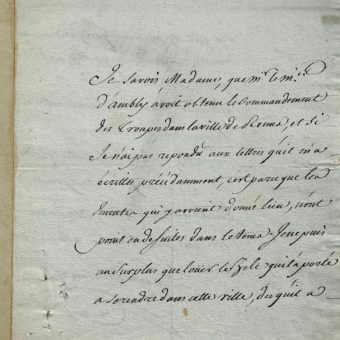 Je savois, Madame, que mr. le mis.
d'ambly avoit obtenu le Commandement
des Troupes dans la ville de Reims, et Si
Je n'ai pas repondu aux lettres qu'il m'a
écrittes précédamment, c'est parce que les
Emeutes qui y avoient donné lieu, n'ont
point eu de suites dans le tems. Je ne puis
au Surplus que louer le Zele qui l'a porté
a se rendre dans cette ville, dès qu'il a